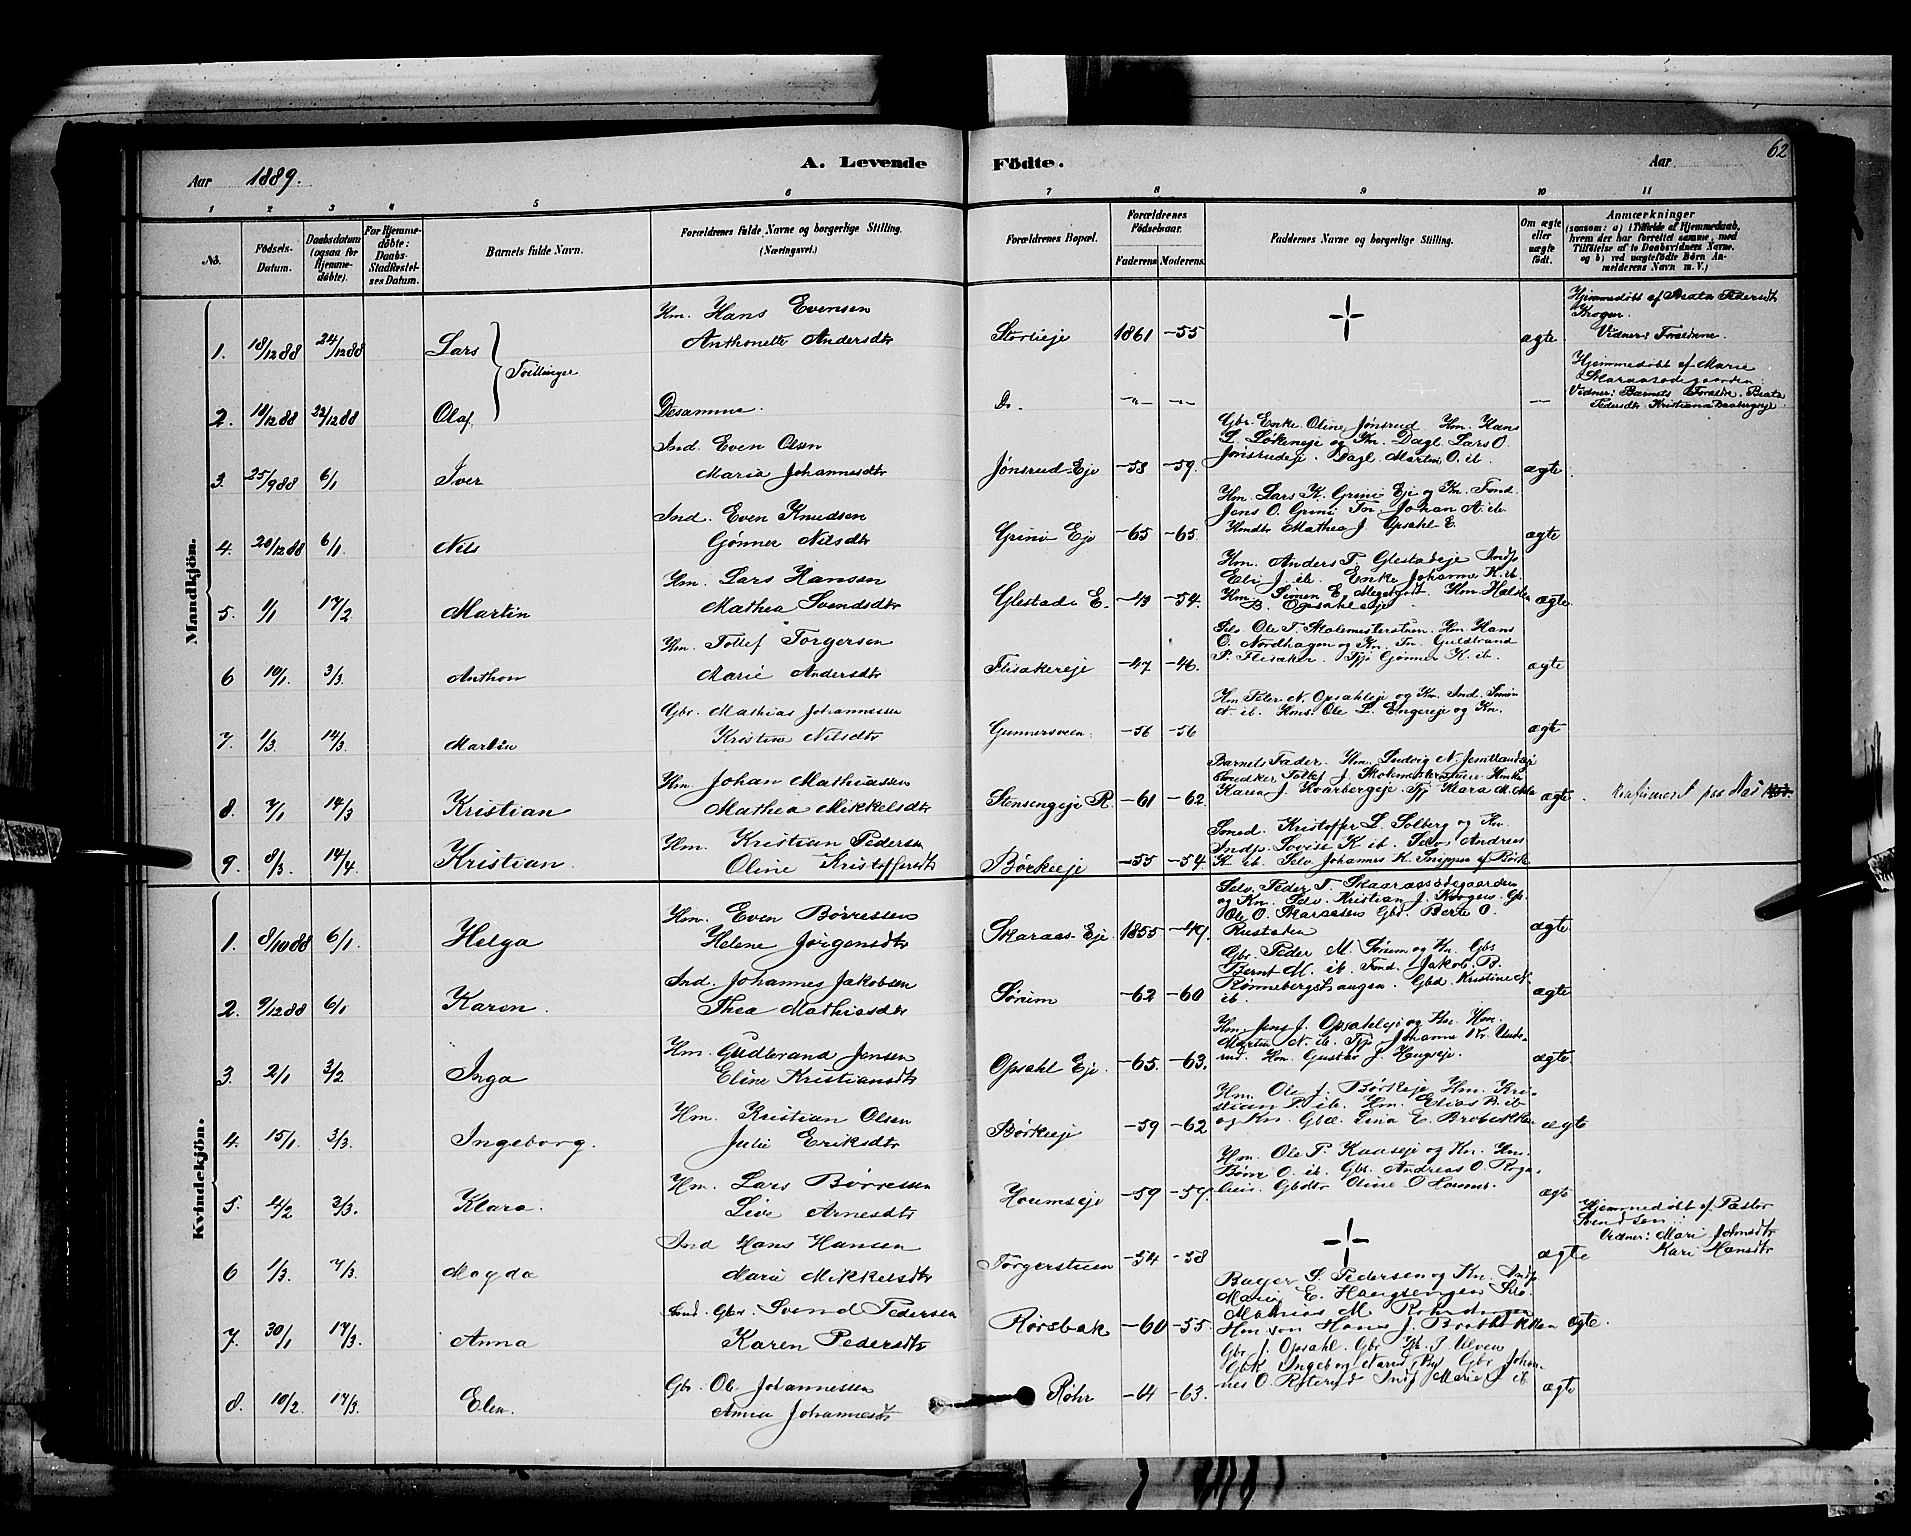 Aar 1889.
A. Levende Födte.
Aar
62
1 2 3 4 5 6 7 8 9 10 11
No.
Födsels-Datum.
Daabsdatum (ogsaa for Hjemmedöbte).
For Hjemmedöbte: Daabs-Stadfæstelses Datum.
Barnets fulde Navn.
Forældrenes fulde Navne og borgerlige Stilling.
(Næringsvei.)
Forældrenes Bopæl.
Forældrenes Födselsaar.
Faderens Moderens
Faddernes Navne og borgerlige Stilling.
Om ægte eller uægte födt.
Anmærkninger
(saasom: a) i Tilfælde af Hjemmedaab, hvem der har forrettet samme, med Tilföielse af to Daabsvidners Navne. og b) ved uægtefödte Börn Anmelderens Navn m. V.)
Mandkjön.
1. 18/12 88 24/12 88 Lars Tvillinger Hm. Hans Evensen
Anthonette Andersdtr 1861 -55 ægte Hjemmedöbt af Beata Pedersdtr
Kroger
Vidner: Forældrene.
2. 18/12 88 22/12 88 Olaf Desamme. Do. -"- -"- — Hjemmedöbt af Marie
Skaraasödegaarden
Vidner: Barnets Forældre. Beata
Pedersdtr. Kristiana
3. 25/9 88 6/1 Iver Ind. Even Olsen
Maria Johannesdtr Jönsrud-Eje -58 -59. Gbr. Enke Oline Jönsrud Hm. Hans
L. Lökeneje og Kn. Dagl. Lars O.
Jönsrudeje. Dagl. Martin O. ib. ægte
4. 20/12 88 6/1 Nils Ind. Even Knudsen
Gönner Nilsdtr Grini Eje -65 -65. Hm. Lars K. Grini Eje og Kn. Fond.
Jens O. Grini Johan A. ib
Mathea J. Opsahl E. ægte
5. 1/1 17/2 Martin Hm. Lars Hansen
Mathea Svendsdtr Glestad E. -49 -54. Hm. Anders T. Glestadeje Indp
Eli J. ib. Enke Johanne K. ib.
Hm. Simen E. Hm. Halsten
B. Opsahleje ægte.
6 10/1. 3/3. Anthon Hm. Tollef Torgersen
Marie Andersdtr Flisakereje -47 -46. Selv. Ole T. Skolemesterstuen. Hm. Hans
O. Nordhagen og Kn. Guldbrand
P. Flisaker. Pje Gönner K. ib. ægte
7. 1/3. 14/3. Martin Gbr. Mathias Johannessen
Kristine Nilsdtr Gunnersveen. -56 -56 Hm Peter N. Opsahleje og Kn. Ind. Simen
N. ib. Hms. Ole L. Engereje og Kn. ægte
8. 7/1 14/3 Kristian Hm. Johan Mathiassen
Mathea Mikkelsdtr Stensengeje R. -61 -62. Barnets Fader. Hm. Ludvig N.
Snedker Tollef J. Skolemesterstuen
Karen J. Kvarbergeje Pje Klara M. ægte. konfirmert paa Næs
9. 8/3. 14/4. Kristian. Hm. Kristian Pedersen
Oline Kristoffersdtr Börkeeje -55 -54. Smed. Kristoffer L. Solberg og Kn.
Indp. Lovise K ib. Selv Andreas
K. ib. Selv. Johannes K. Snippen af Börke
Kvindekjön.
1. 8/10 88 6/1. Helga Hm. Even Börresen
Helene Jörgensdtr Skaraas-Eje. 1855 -49. Selv. Peder T. Skaraasödegaarden
og Kn. Selv. Kristian J. Krogen. Gbr
Ole O. Skaraasen Gbd. Berte O.
Rustaden ægte
2. 9/12 88 6/1 Karen. Ind. Johannes Jakobsen
Thea Mathiasdtr Sörum -62 -60 Gbr. Peder M. Sörum og Kn. Gbs
Bernt M. ib. Fond. Jakob B.
Rönnebergshaugen. Gbd. Kristine N.
ib. ægte
3. 2/1 3/2 Inga Hm. Gudbrand Jensen
Eline Kristiansdtr Opsahl Eje. -65. -63. Hm. Jens J. Opsahleje og Kn. Hm.
Martin N. ib. Pje Johanne Kr.
Hm. Gustav J. Haugseje. ægte
4. 15/1 3/3. Ingeborg. Hm. Kristian Olsen
Julie Eriksdtr Börkeeje -59 -62 Hm. Ole J. Börkeje Hm. Kri-
stian P. ib. Hm. Elias B. ib
og Kn. Gbd. Lina E. Brobakken ægte
5. 4/2 3/3. Klara. Hm. Lars Börresen
Live Arnesdtr Houmseje -59 -59. Hm. Ole P. Kaaseje og Kn. Hm.
Börre O. ib. Gbr. Andreas O.
Gbdtr Oline O Houms. ægte
6 1/3. 7/3. Magda Ind Hans Hansen
Marie Mikkelsdtr Torgerstuen -54 -58 ægte Hjemmedöbt af Pastor
Svendsen
Vidner: Mari
Kari Hansdtr
7. 30/1 17/3. Anna Gbr. Svend Pedersen
Karen Pedersdtr Rörsbak -60 -55 Bager P. Pedersen og Kn. Indp
Marie E. Haugsengen
Mathias M.
Hans J. Brobakken ægte.
8. 10/2. 17/3. Elen. Gbr. Ole Johannessen
Anna Johannesdtr Röhr -64 -63. Gbr. J. Opsahl. Gbr. P. Ulven
Gbk Ingeborg Gbr Johan-
nes O. Röterud Indp Marie J ib ægte